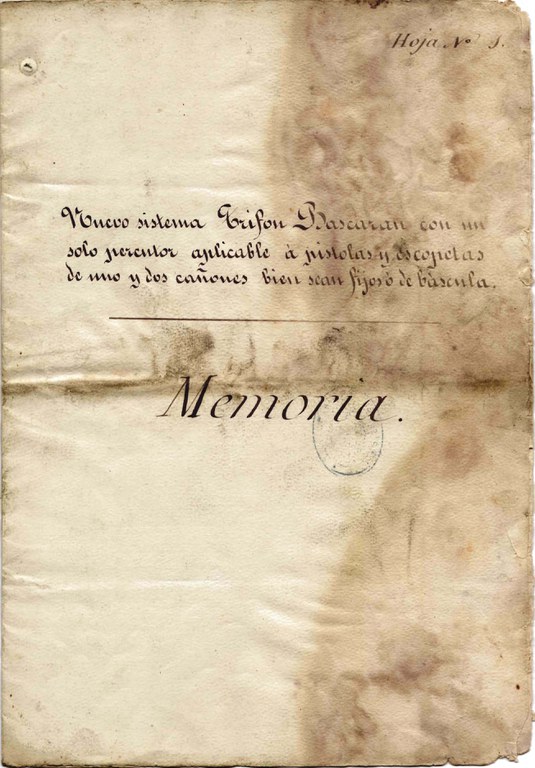 Hoja Nº 1.
Nuevo sistema Trifon Bascaran con un
solo percutor aplicable à pistolas y escopetas
de uno y dos cañones bien sean fijos ó de báscula.
Memoria.